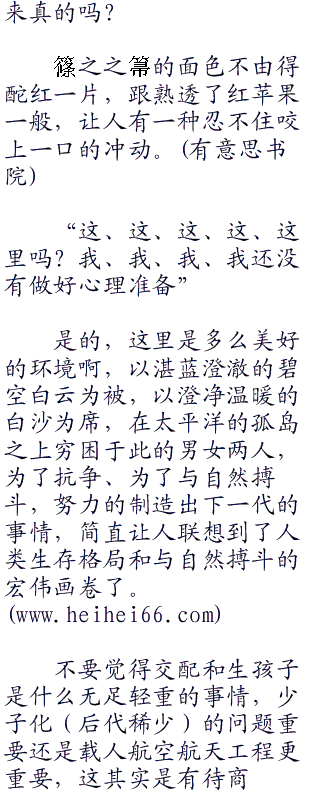 来真的吗？
篠之之箒的面色不由得
酡红一片，跟熟透了红苹果
一般，让人有一种忍不住咬
上一口的冲动。（有意思书
院）
“这、这、这、这、这
里吗？我、我、我、我还没
有做好心理准备”
是的，这里是多么美好
的环境啊，以湛蓝澄澈的碧
空白云为被，以澄净温暖的
白沙为席，在太平洋的孤岛
之上穷困于此的男女两人，
为了抗争、为了与自然搏
斗，努力的制造出下一代的
事情，简直让人联想到了人
类生存格局和与自然搏斗的
宏伟画卷了。
(www.heihei66.com)
不要觉得交配和生孩子
是什么无足轻重的事情，少
子化（后代稀少）的问题重
要还是载人航空航天工程更
重要，这其实是有待商